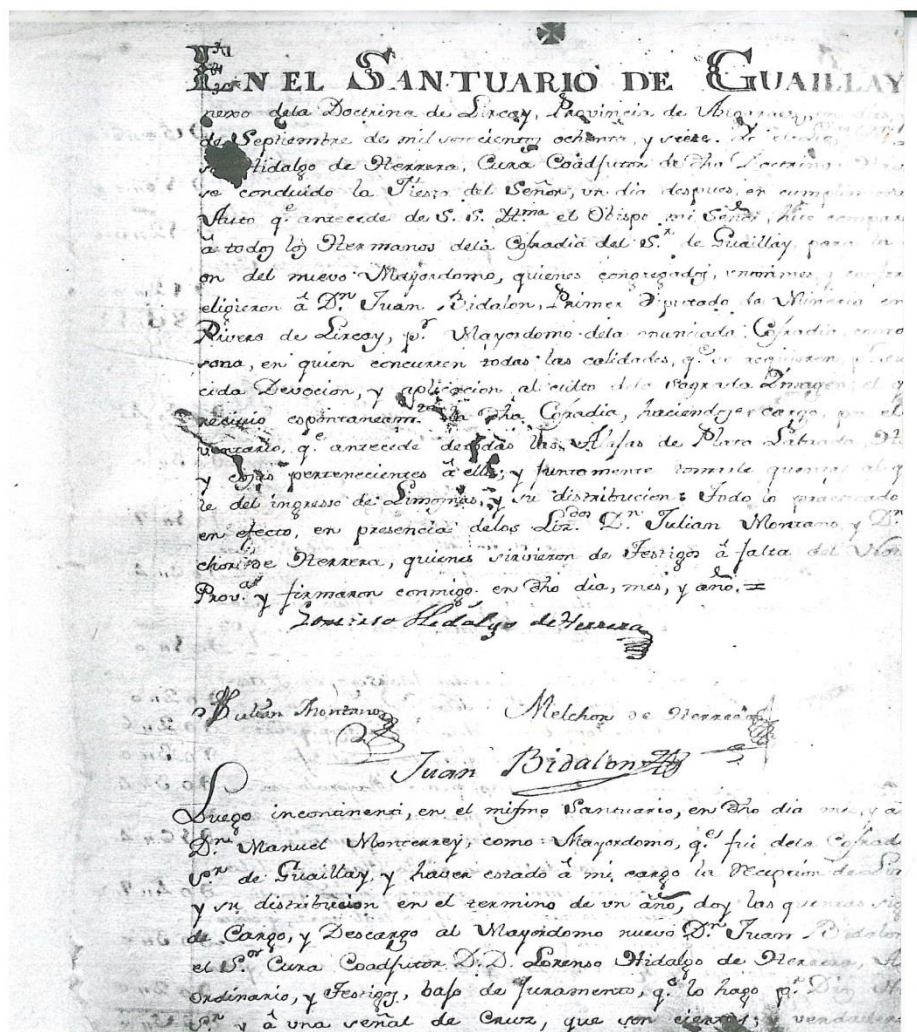 EN EL SANTUARIO DE GUAILLAY
nexo dela Doctrina de Lircay, Provincia de
de Septiembre de mil setecientos ochenta, y siete.
Hidalgo de Herrera, Cura Coadjutor de dha Doctrina
se concluido la Fiesta del Señor, un dia despues, en cumplimien
Auto q.e antecede de S. S. Ill.ma el Obispo mi Señor, hice compar
â todos los Hermanos dela Cofradia del S.r de Guaillay, para la
on del nuevo Mayordomo, quienes congregados, unanimes, y confor
eligieron â D.n Juan Bidalon, Primer Diputado de Mineria en
Rivera de Lircay, p.r Mayordomo dela enunciada Cofradia, como
sona, en quien concurren todas las calidades, q.e se requieren, p.r su
cida Devocion, y aplicacion al culto dela Sagrada Imagen, el q
recivio espontaneam.te dha Cofradia, haciendose cargo, por el
ventario, q.e antecede de todas las Alajas de Plata Labrada,
y cosas pertenecientes â ella; y juntamente tomele quentas al q
le del ingresso de Limosnas, y su distribucion: Todo lo practicado
en efecto, en presencia delos Liz.dos D.n Julian Montano, y D.n
chor de Herrera, quienes sirvieron de Testigos â falta del Not
y firmaron conmigo en dho dia, mes, y año. =
Lorenso Hidalgo de Herrera
Julian Montano Melchor de Herrera
Juan Bidalon
Luego incontinenti, en el mismo Santuario, en dho dia mes, y a
D.n Manuel Monterrey, como Mayordomo, q.e fui dela Cofrad
de Guaillay, y haver estado â mi cargo la Recepcion de
y su distribucion en el termino de un año, doy las quentas
de Cargo, y Descargo al Mayordomo nuevo D.n Juan Bidalon
el S.or Cura Coadjutor D.D. Lorenso Hidalgo de Herrera,
ordinario, y Testigos, bajo de Juramento, q.e lo hago p.r Dios
S.r y â una señal de Cruz, que son ciertas; y verdader